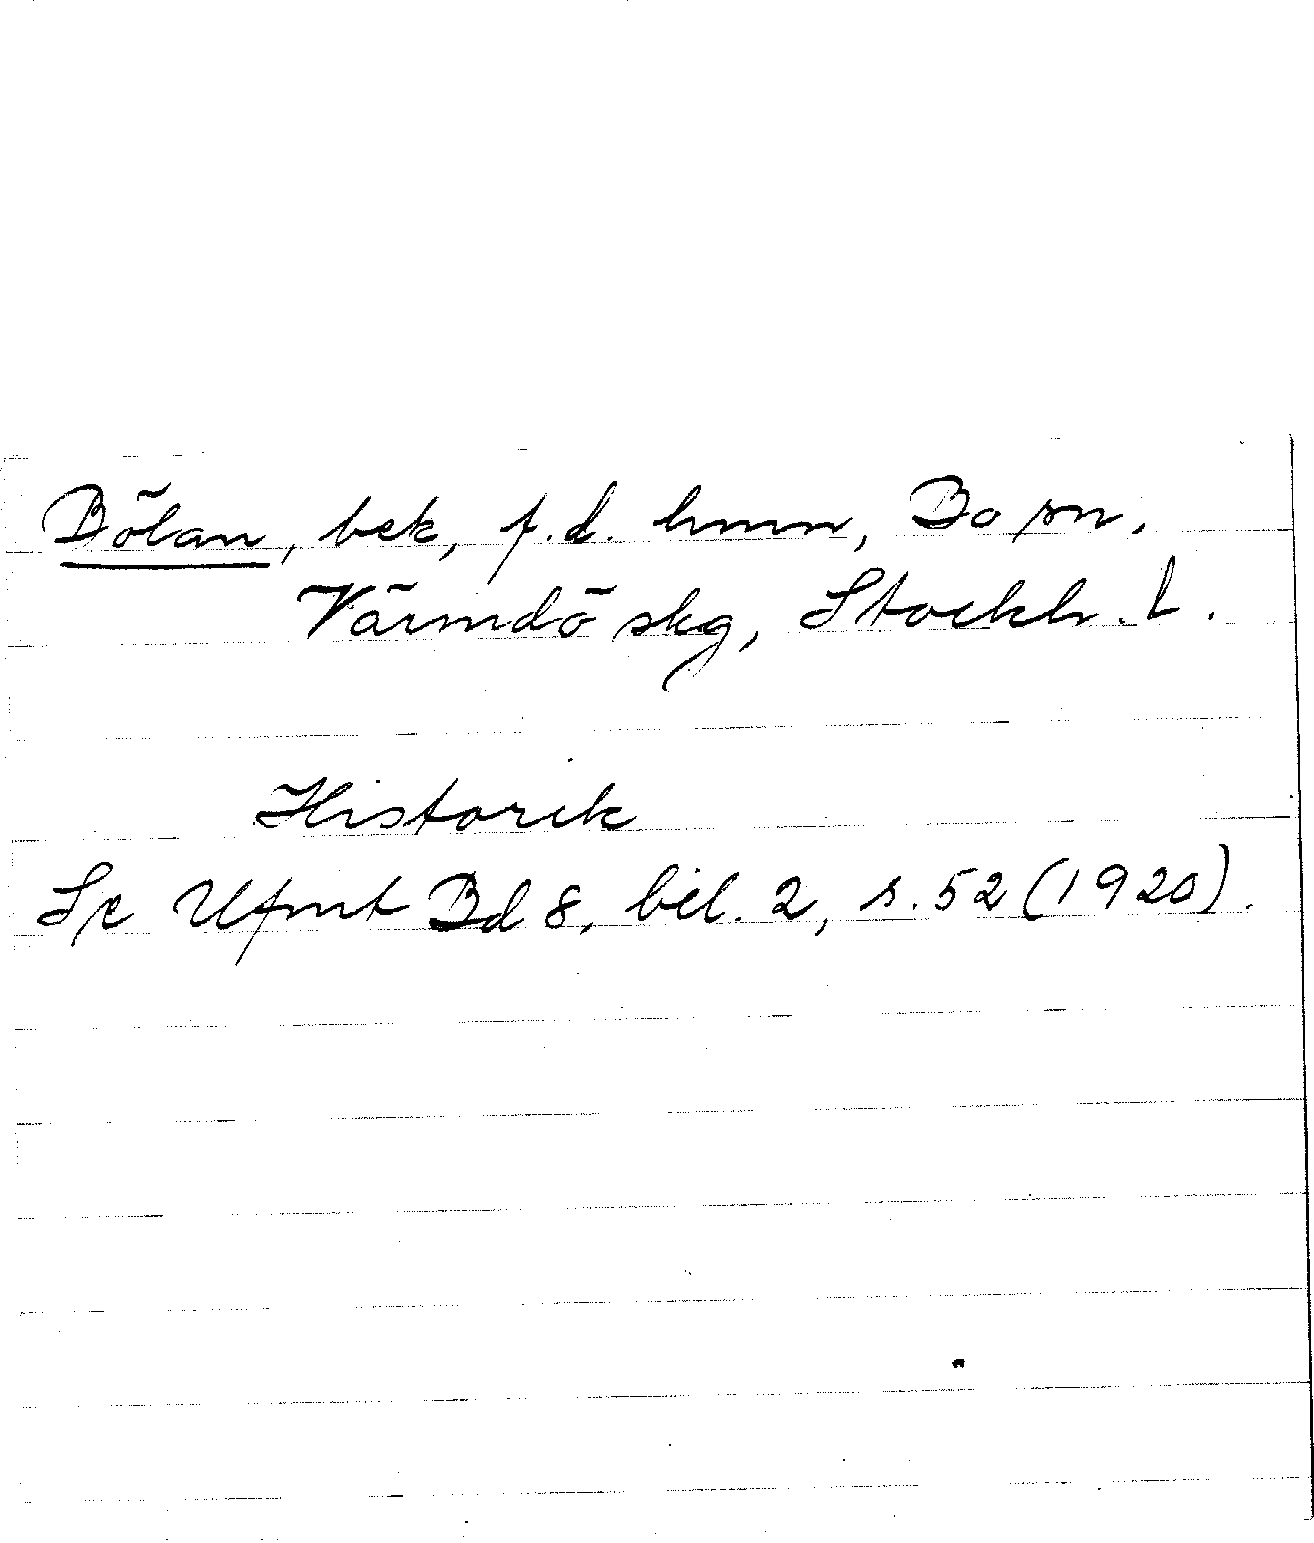 Bölan, bek, f.d. hmn, Bo sn,
Värmdö skg, Stockh. l.
Historik
Se Ufmt Bd 8, bil. 2, s. 52 (1920).